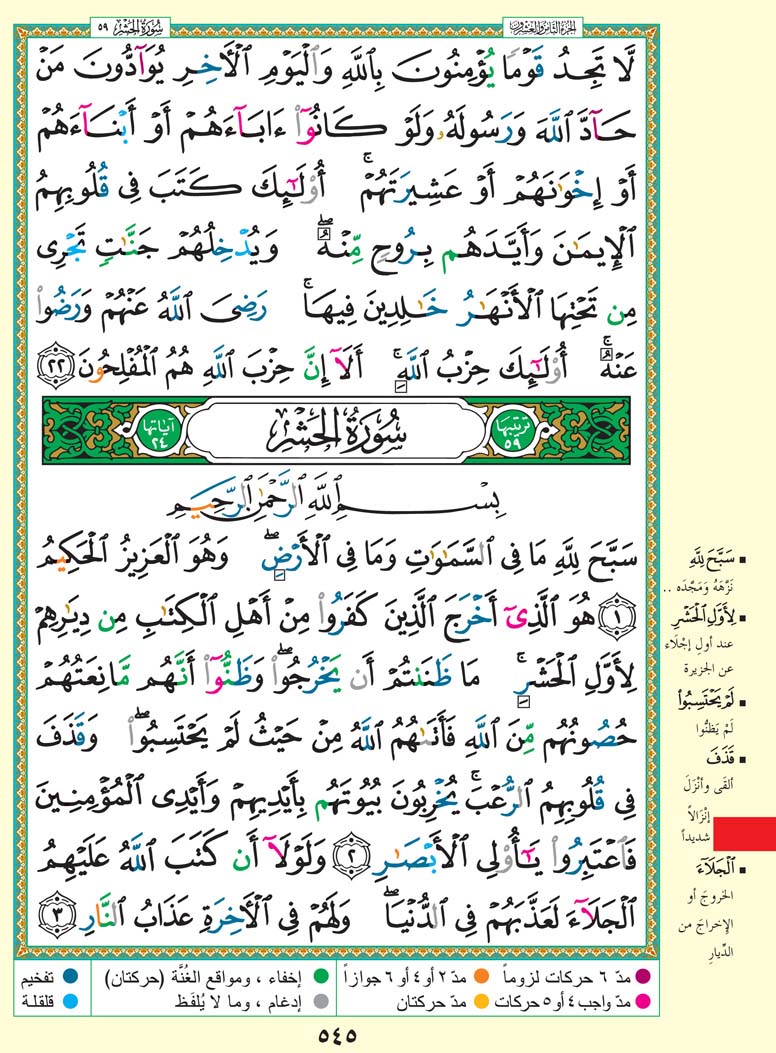 سُورَةُ الحَشْرِ ٥٩
الجُزْءُ الثَّامِنُ وَالعِشْرُونَ
لَّا تَجِدُ قَوْمًا يُؤْمِنُونَ بِٱللَّهِ وَٱلْيَوْمِ ٱلْأَخِرِ يُوَآدُّونَ مَنْ
حَآدَّ ٱللَّهَ وَرَسُولَهُۥ وَلَوْ كَانُوٓا۟ ءَابَآءَهُمْ أَوْ أَبْنَآءَهُمْ
أَوْ إِخْوَٰنَهُمْ أَوْ عَشِيرَتَهُمْ ۚ أُو۟لَٰٓئِكَ كَتَبَ فِى قُلُوبِهِمُ
ٱلْإِيمَٰنَ وَأَيَّدَهُم بِرُوحٍ مِّنْهُ ۖ وَيُدْخِلُهُمْ جَنَّٰتٍ تَجْرِى
مِن تَحْتِهَا ٱلْأَنْهَٰرُ خَٰلِدِينَ فِيهَا ۚ رَضِىَ ٱللَّهُ عَنْهُمْ وَرَضُوا۟
عَنْهُ ۚ أُو۟لَٰٓئِكَ حِزْبُ ٱللَّهِ ۚ أَلَآ إِنَّ حِزْبَ ٱللَّهِ هُمُ ٱلْمُفْلِحُونَ ٢٢
ترتيبها ٥٩
سُورَةُ الحَشْرِ
آياتها ٢٤
بِسْمِ ٱللَّهِ ٱلرَّحْمَٰنِ ٱلرَّحِيمِ
سَبَّحَ لِلَّهِ مَا فِى ٱلسَّمَٰوَٰتِ وَمَا فِى ٱلْأَرْضِ ۖ وَهُوَ ٱلْعَزِيزُ ٱلْحَكِيمُ
١ هُوَ ٱلَّذِىٓ أَخْرَجَ ٱلَّذِينَ كَفَرُوا۟ مِنْ أَهْلِ ٱلْكِتَٰبِ مِن دِيَٰرِهِمْ
لِأَوَّلِ ٱلْحَشْرِ ۚ مَا ظَنَنتُمْ أَن يَخْرُجُوا۟ ۖ وَظَنُّوٓا۟ أَنَّهُم مَّانِعَتُهُمْ
حُصُونُهُم مِّنَ ٱللَّهِ فَأَتَىٰهُمُ ٱللَّهُ مِنْ حَيْثُ لَمْ يَحْتَسِبُوا۟ ۖ وَقَذَفَ
فِى قُلُوبِهِمُ ٱلرُّعْبَ ۚ يُخْرِبُونَ بُيُوتَهُم بِأَيْدِيهِمْ وَأَيْدِى ٱلْمُؤْمِنِينَ
فَٱعْتَبِرُوا۟ يَٰٓأُو۟لِى ٱلْأَبْصَٰرِ ٢ وَلَوْلَآ أَن كَتَبَ ٱللَّهُ عَلَيْهِمُ
ٱلْجَلَآءَ لَعَذَّبَهُمْ فِى ٱلدُّنْيَا ۖ وَلَهُمْ فِى ٱلْأَخِرَةِ عَذَابُ ٱلنَّارِ ٣
▪ سَبَّحَ لِلَّهِ
نَزَّهَهُ وَمَجَّدَه ..
▪ لِأَوَّلِ الْحَشْرِ
عند أول إجْلَاء
عن الجزيرة
▪ لَمْ يَحْتَسِبُوا۟
لَمْ يَظنُّوا
▪ قَذَفَ
ألقَى وأنْزَلَ
إنْزَالاً
شديداً
▪ الْجَلَآءَ
الخروجَ أو
الإخراجَ من
الدِّيارِ
مدّ ٦ حركات لزوماً
مدّ ٢ أو ٤ أو ٦ جوازاً
إخفاء ، ومواقع الغُنَّة (حركتان)
تفخيم
مدّ واجب ٤ أو ٥ حركات
مدّ حركتان
إدغام ، وما لا يُلفَظ
قلقلة
٥٤٥